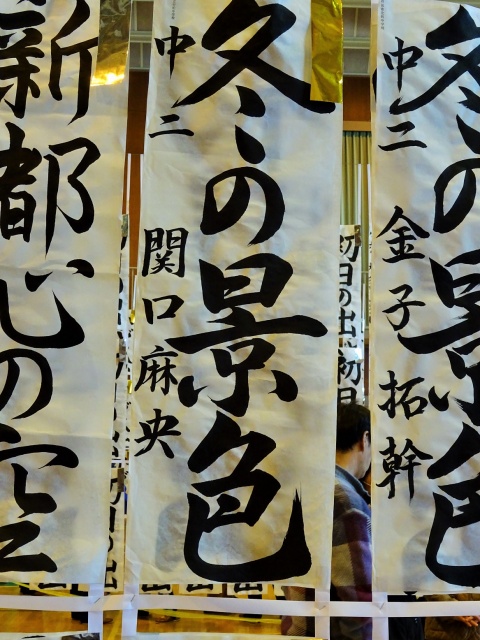 冬の景色
中二 金子拓幹
冬の景色
中二 関口麻央
新都心の空
初日の出
初日